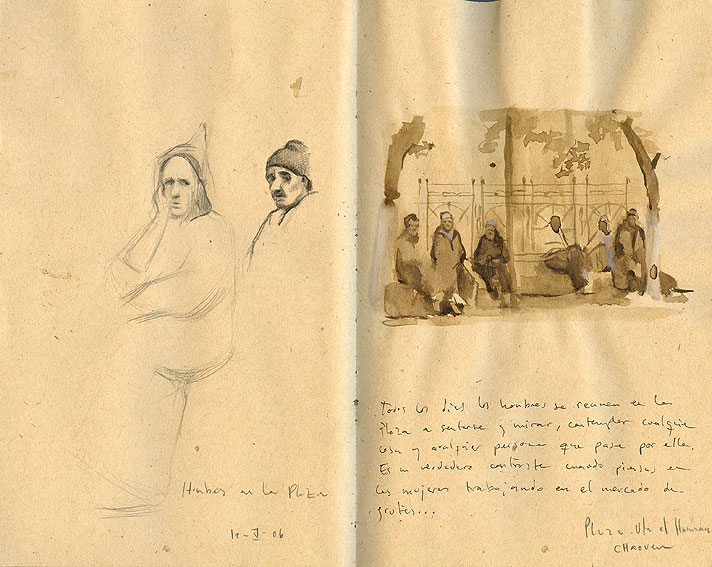 Hombres en la Plaza
06
Todos los días los hombres se reunen en la
Plaza a sentarse y mirar, contemplar cualquier
cosa y cualquier persona que pase por ella.
Es un verdadero contraste cuando piensas en
las mujeres trabajando en el mercado de
frutas...
Plaza Uta el Hammam
CHAOUEN